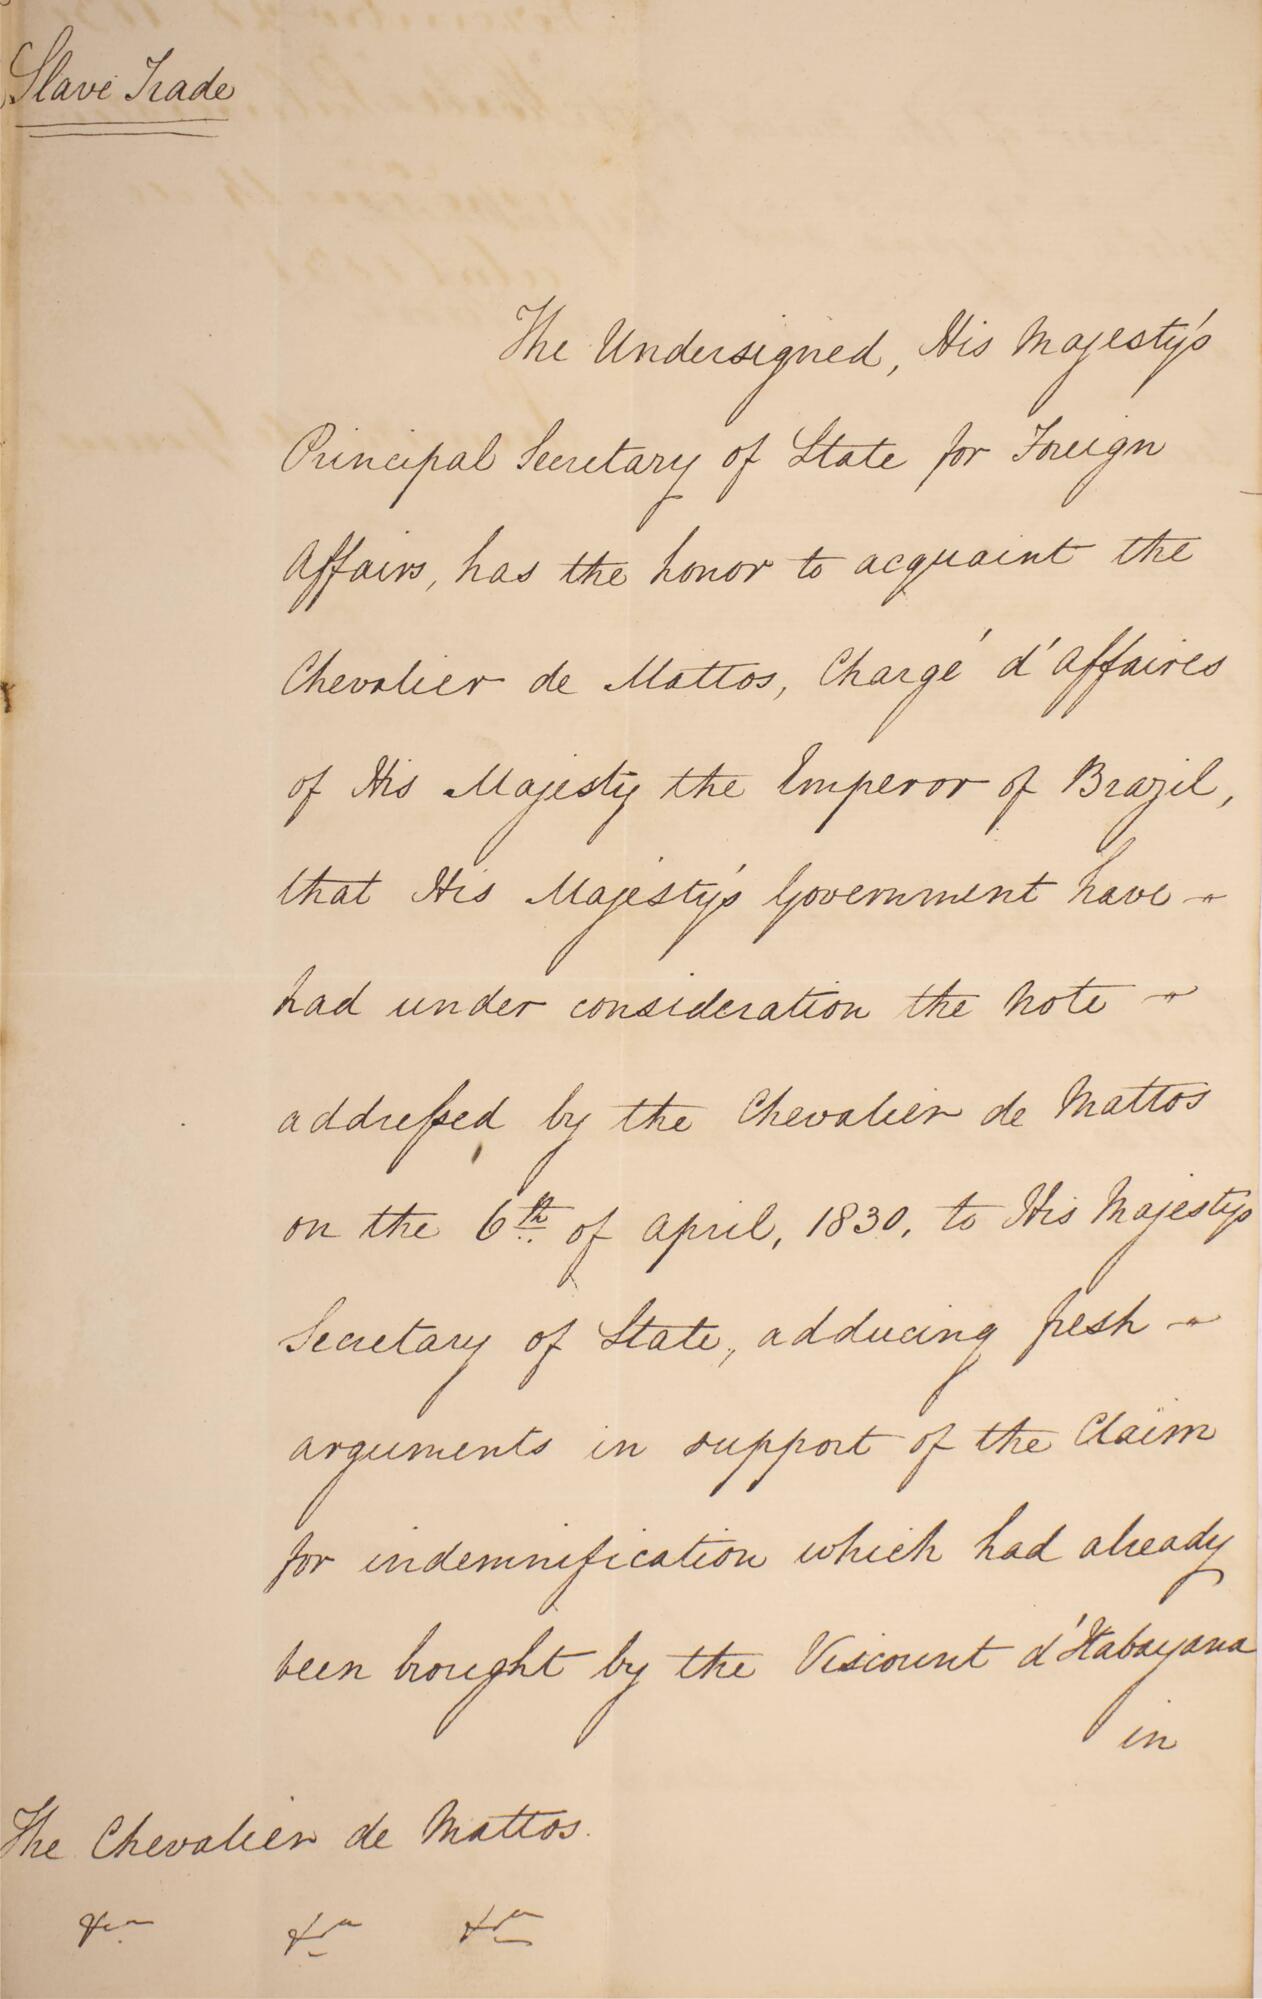 Slave Trade
The Undersigned, His Majesty's
Principal Secretary of State for Foreign
Affairs, has the honor to acquaint the
Chevalier de Mattos, Chargé d'Affaires
of His Majesty the Emperor of Brazil,
that His Majesty's Government have
had under consideration the Note
addressed by the Chevalier de Mattos
on the 6th of April, 1830, to His Majesty's
Secretary of State, adducing fresh
arguments in support of the Claim
for indemnification which had already
been brought by the Viscount d'Itabayana
in
The Chevalier de Mattos.
&c &c &c